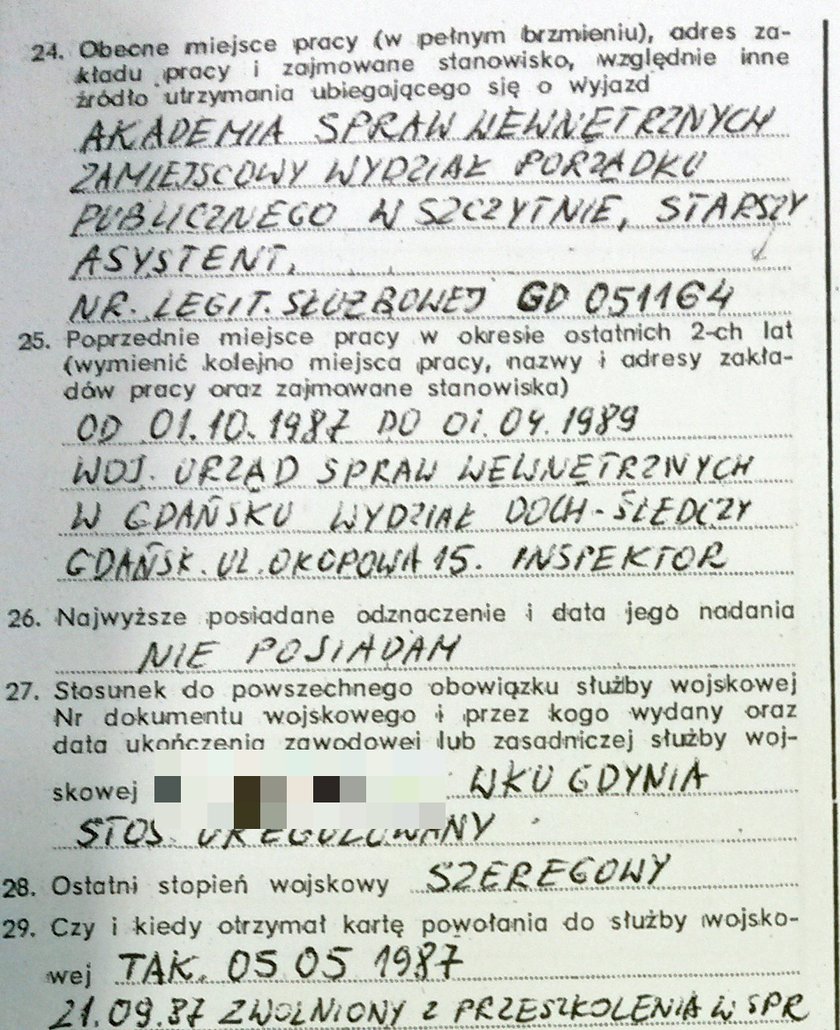 24. Obecne miejsce pracy (w pełnym brzmieniu), adres za-
kładu pracy i zajmowane stanowisko, względnie inne
źródło utrzymania ubiegającego się o wyjazd
AKADEMIA SPRAW WEWNĘTRZNYCH
ZAMIEJSCOWY WYDZIAŁ PORZĄDKU
PUBLICZNEGO W SZCZYTNIE, STARSZY
ASYSTENT.
NR. LEGIT. SŁUŻBOWEJ GD 051164
25. Poprzednie miejsce pracy w okresie ostatnich 2-ch lat
(wymienić kolejno miejsca pracy, nazwy i adresy zakła-
dów pracy oraz zajmowane stanowiska)
OD 01.10.1987 DO 01.04.1989
WOJ. URZĄD SPRAW WEWNĘTRZNYCH
W GDAŃSKU WYDZIAŁ DOCH-ŚLEDCZY
GDAŃSK. UL. OKOPOWA 15. INSPEKTOR
26. Najwyższe posiadane odznaczenie i data jego nadania
NIE POSIADAM
27. Stosunek do powszechnego obowiązku służby wojskowej
Nr dokumentu wojskowego i przez kogo wydany oraz
data ukończenia zawodowej lub zasadniczej służby woj-
skowej WKU GDYNIA
STOS. UREGULOWANY
28. Ostatni stopień wojskowy SZEREGOWY
29. Czy i kiedy otrzymał kartę powołania do służby wojsko-
wej TAK. 05 05 1987
21.09.87 ZWOLNIONY Z PRZESZKOLENIA W SPR